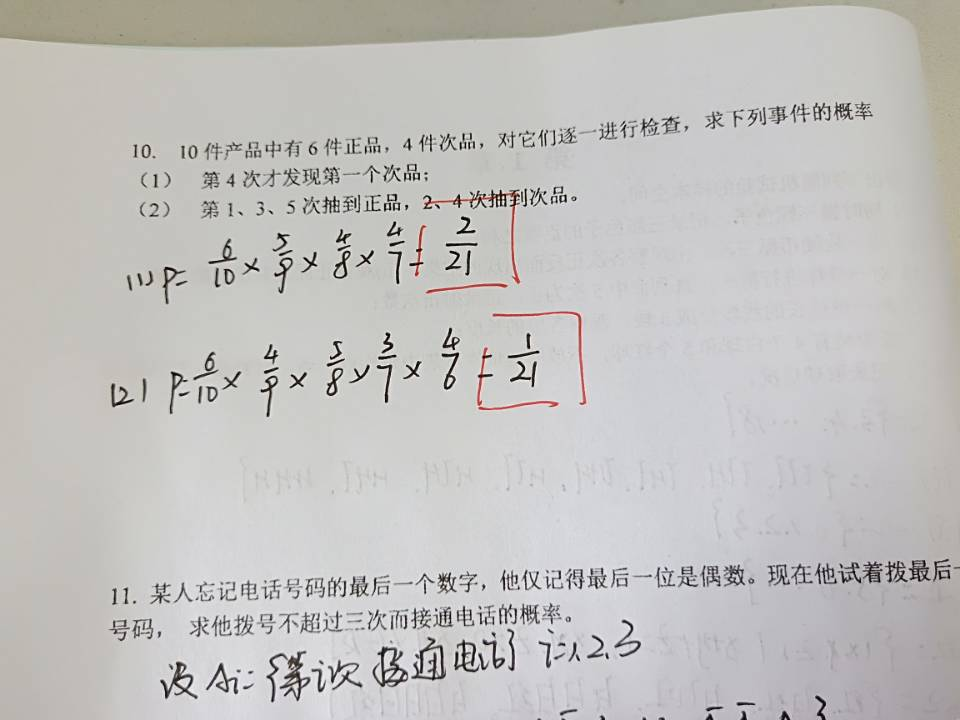 10. 10 件产品中有 6 件正品，4 件次品，对它们逐一进行检查，求下列事件的概率
（1） 第 4 次才发现第一个次品；
（2） 第 1、3、5 次抽到正品，2、4 次抽到次品。
(1) P= 6/10 × 5/9 × 4/8 × 4/7 = 2/21
(2) P= 6/10 × 4/9 × 5/8 × 3/7 × 4/6 = 1/21
11. 某人忘记电话号码的最后一个数字，他仅记得最后一位是偶数。现在他试着拨最后一
号码， 求他拨号不超过三次而接通电话的概率。
设 Ai= {第i次 接通电话} i=1,2,3